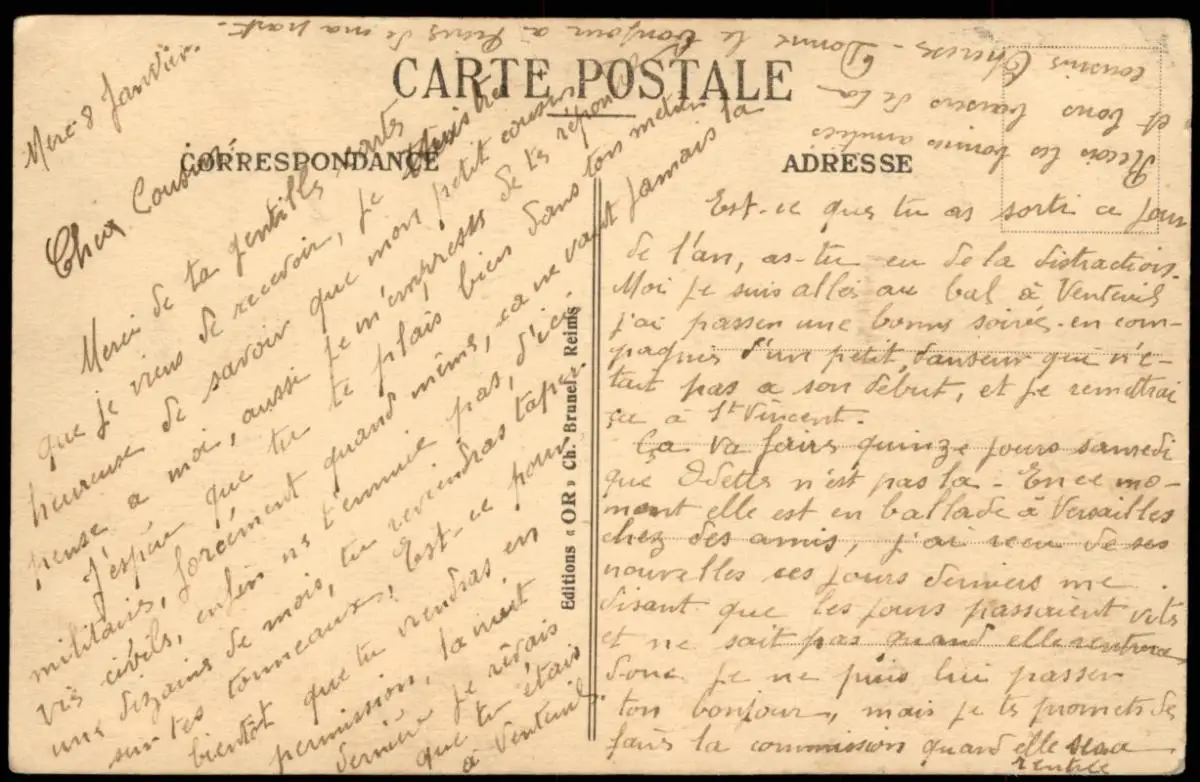 CARTE POSTALE
CORRESPONDANCE
ADRESSE
Editions « OR » Ch. Brunel, Reims
Merc 8 Janvier.
Cher Cousin.
Merci de ta gentille carte
que je viens de recevoir, je suis très
heureuse de savoir que mon petit cousin
pense a moi, aussi je m'empresse de te répondre
J'espère que tu te plais bien dans ton métier
militaire, forcément quand même, ca ne vaut jamais la
vie civils, enfin ne t'ennuie pas, d'ici
une dizaine de mois, tu reviendras taper
sur tes tonneaux, Est-ce pour
bientôt que tu viendras en
permission, la nuit
dernière je rêvais
que tu étais
à Venteuil.
Est-ce que tu as sorti ce jour
de l'an, as-tu eu de la distraction.
Moi je suis allée au bal à Venteuil
j'ai passer une bonne soirée en com-
pagnie d'un petit danseur qui n'é-
tait pas a son début, et je remettrai
ça à St Vincent.
Ça va faire quinze jours samedi
que Odette n'est pas la - En ce mo-
ment elle est en ballade à Versailles
chez des amis, j'ai recu de ses
nouvelles ces jours derniers me
disant que les jours passaient vite
et ne sait pas quand elle rentrera,
donc je ne puis lui passer
ton bonjour, mais je te promets de
faire la commission quand elle sera
rentrée
Recois les bonnes amitiés
et bons baisers de ta
cousine Thérèse - Donne le bonjour à
de ma part.